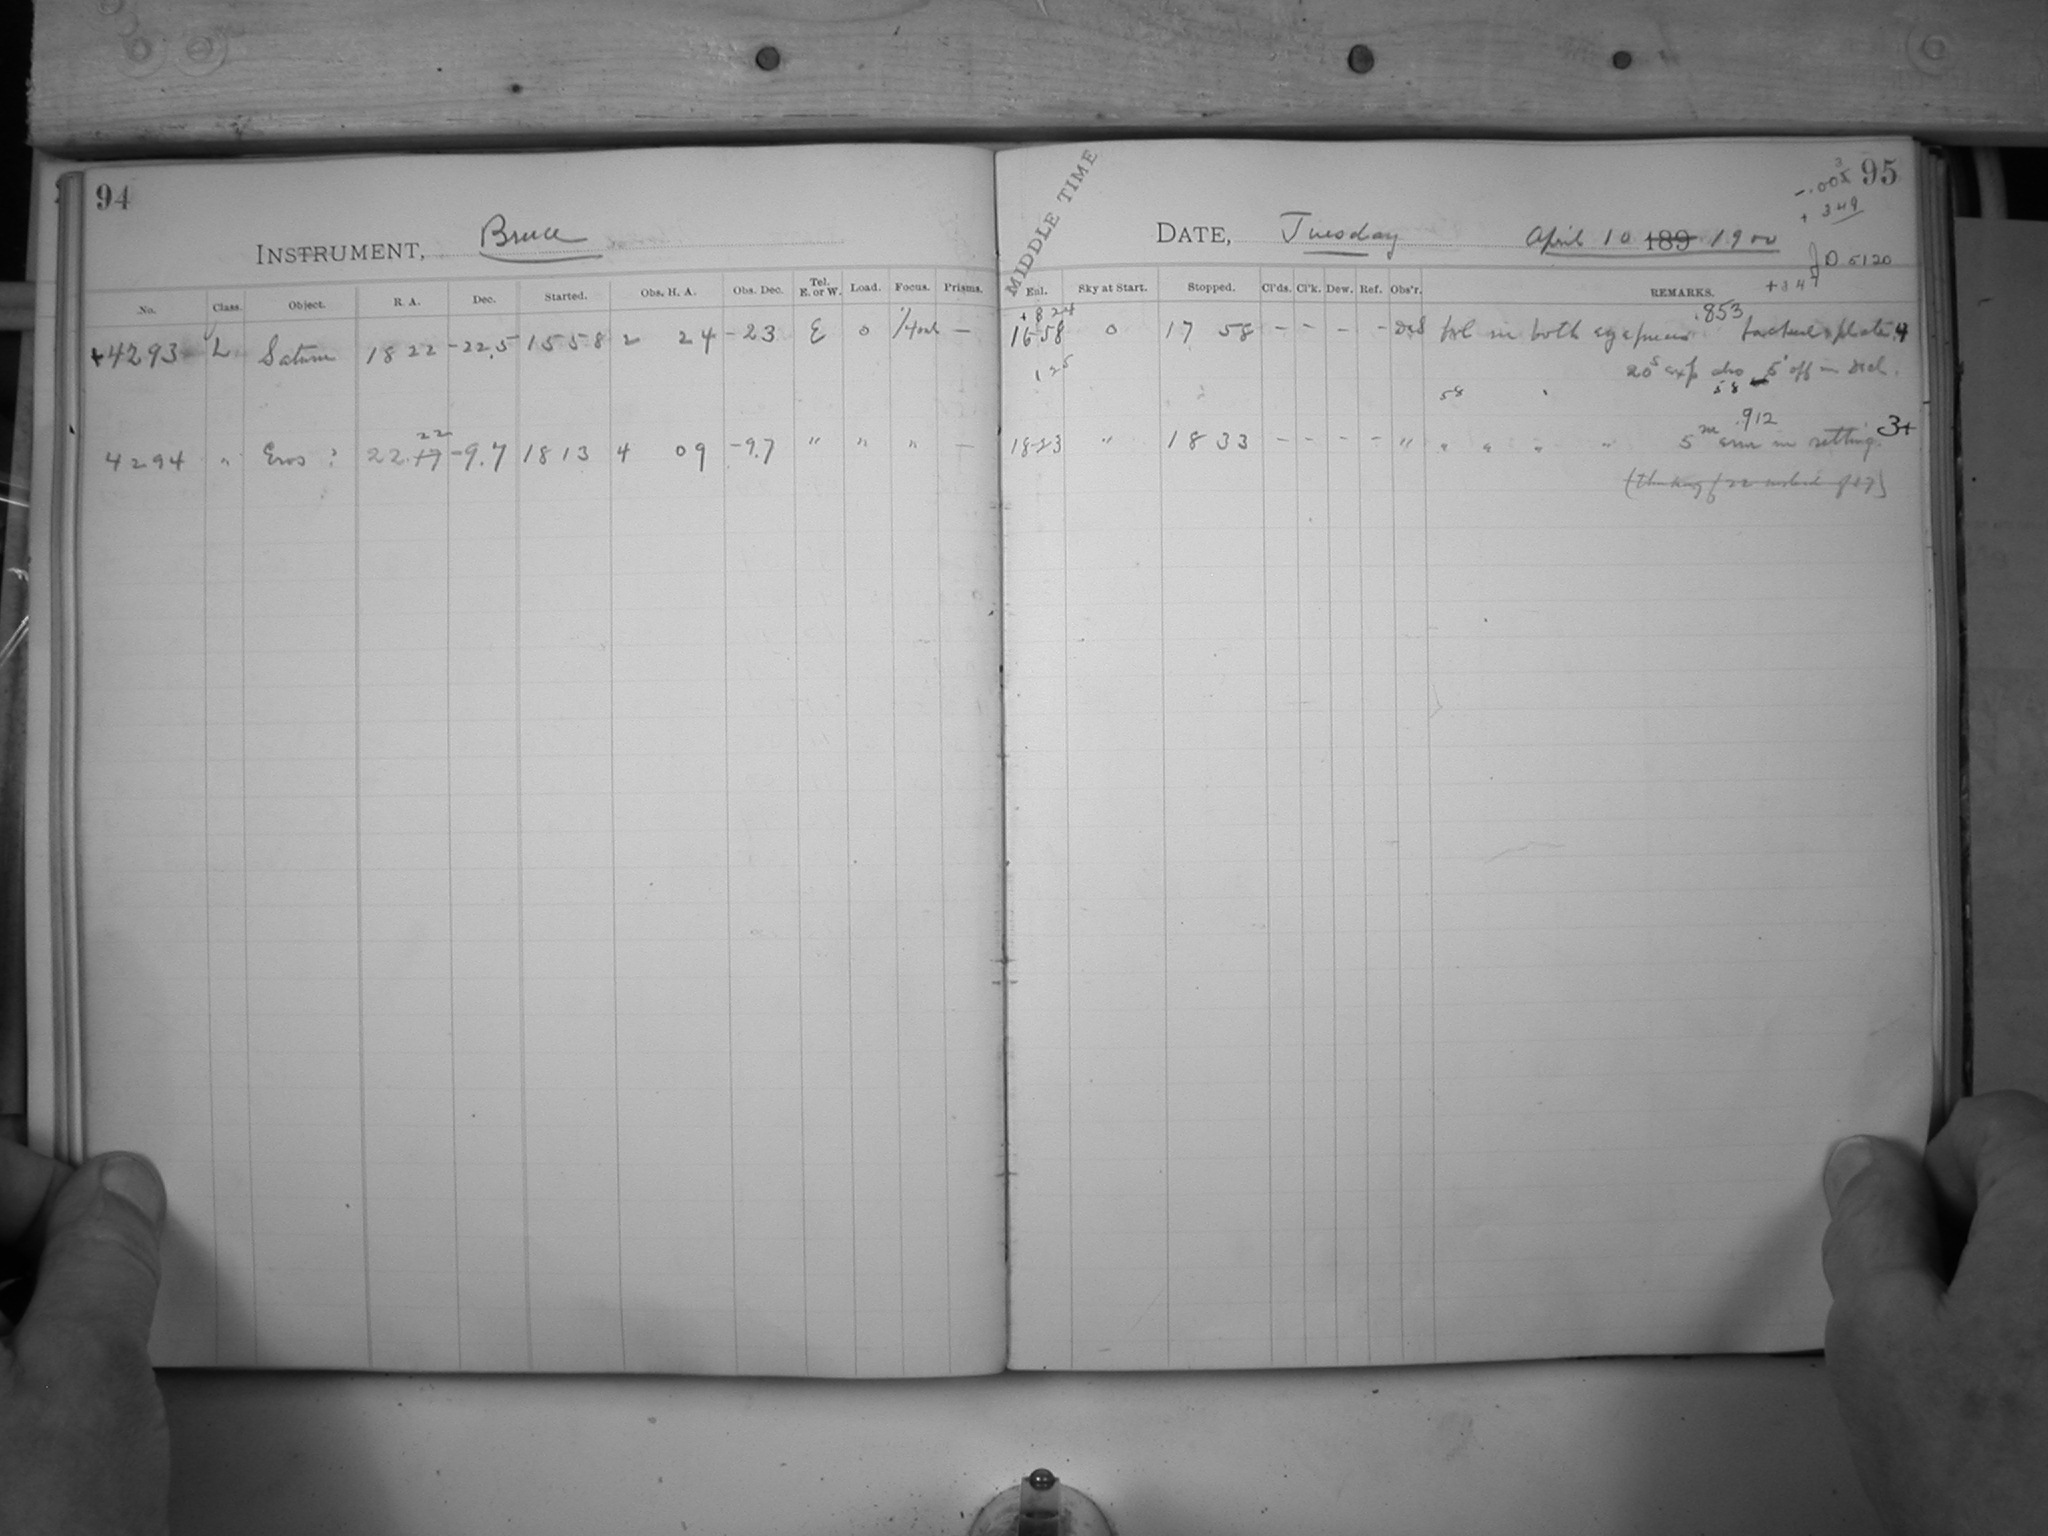 94
INSTRUMENT, Bruce
No. Class. Object. R. A. Dec. Started. Obs. H. A. Obs. Dec. Tel. E. or W. Load. Focus. Prisms.
+4293 L Saturn 18 22 -22.5 15 58 2 24 -23 E 0 —
4294 " Eros : 22 17 22 -9.7 18 13 4 09 -9.7 " " " —
95
-.005 3
+ 349
MIDDLE TIME
DATE, Tuesday April 10 189 1900
J D 5120
+347
Enl. Sky at Start. Stopped. Cl'ds. Cl'k. Dew. Ref. Obs'r. REMARKS.
+ 8 24 .853
16 58 0 17 58 - - - - fol in both eyepieces plate 4
1 25 20s exp also 5' off in Decl.
58 58
.912
18 23 " 18 33 - - - - " " " " " 5m error in setting. 3+
(thinking of 22 instead of 17)